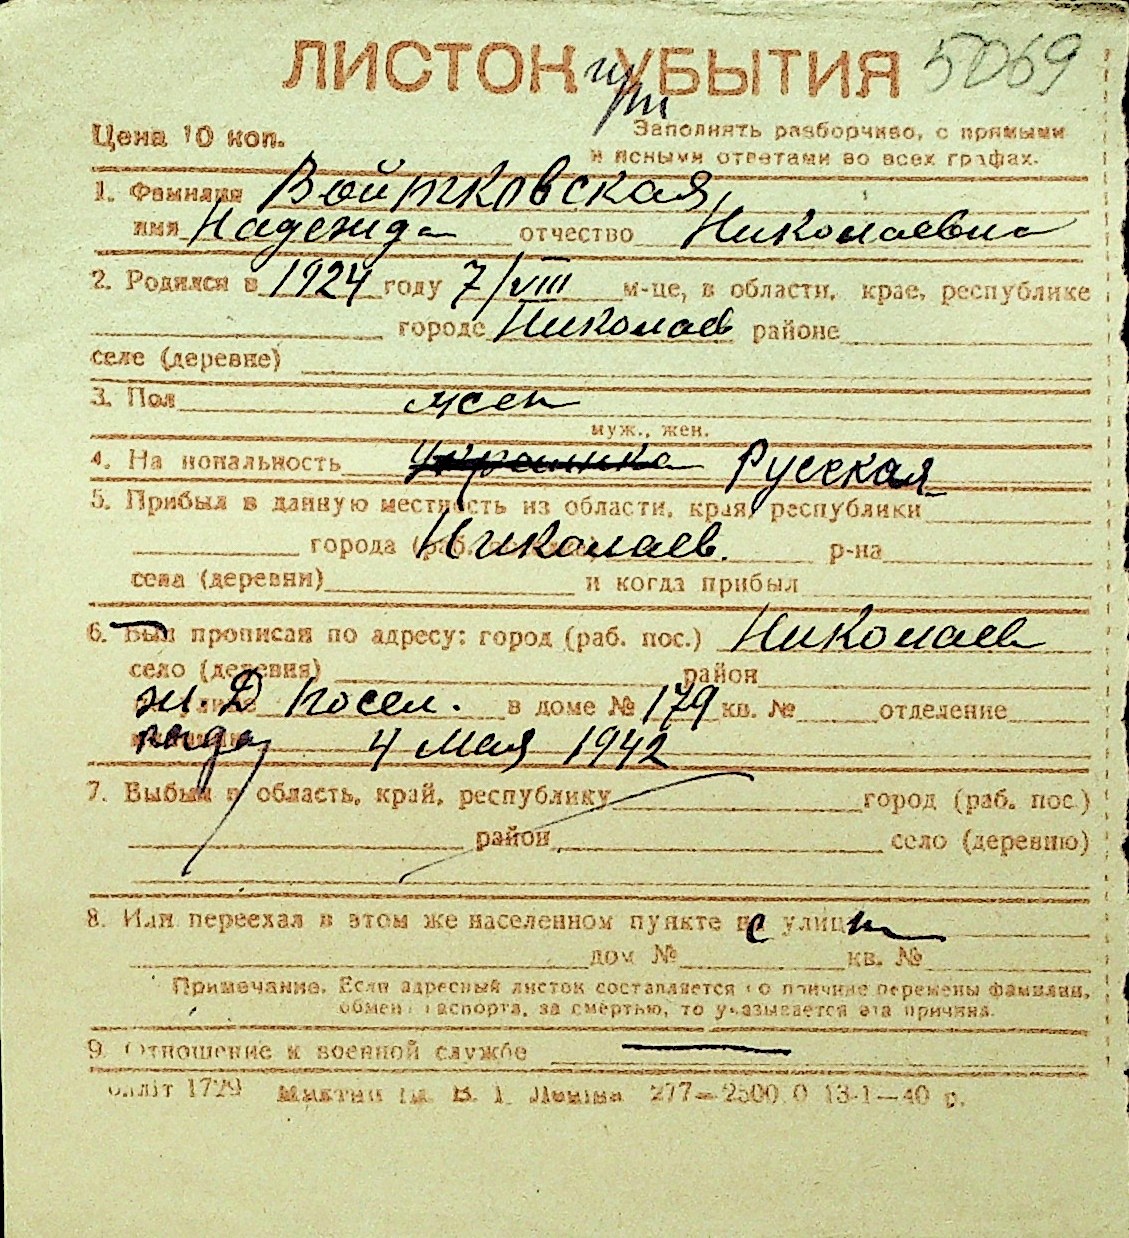 ЛИСТОК УБЫТИЯ 5069
Цена 10 коп.
Заполнять разборчиво, с прямыми
и ясными ответами во всех графах.
1. Фамилия Войтковская
имя Надежда отчество Николаевна
2. Родился в 1924 году 7/VIII м-це, в области, крае, республике
городе Николаев районе
селе (деревне)
3. Пол жен
муж., жен.
4. На нональность Украинка Русская
5. Прибыл в данную местность из области, края, республики
города (раб. Николаев. р-на
села (деревни) и когда прибыл
6. Был прописан по адресу: город (раб. пос.) Николаев
село (деревня) район
ж.Д посел. в доме № 179 кв. № отделение
4 Мая 1942
7. Выбыл в область, край, республику город (раб. пос.)
район село (деревню)
8. Или переехал в этом же населенном пункте
дом № кв. №
Примечание. Если адресный листок составляется по причине перемены фамилии,
обмена паспорта, за смертью, то указывается эта причина.
9. Отношение к военной службе
1729 277—2500.0 13-1—40 р.